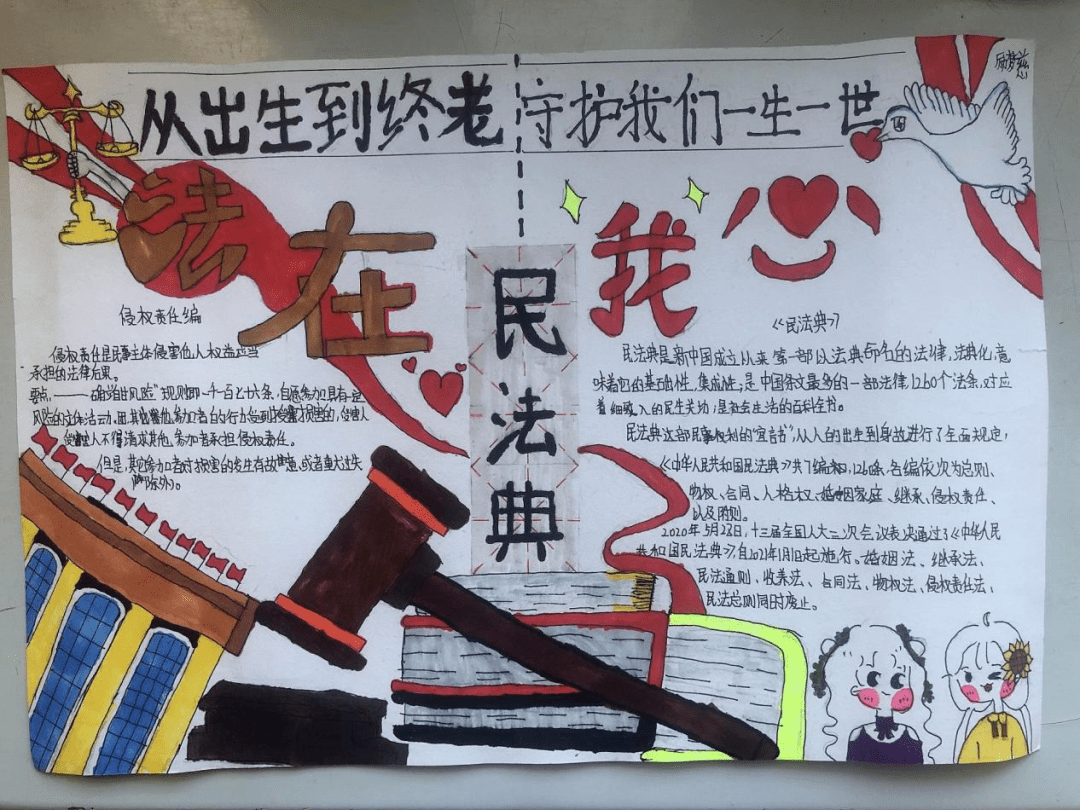 从出生到终老 守护我们一生一世
法在我心
民法典
侵权责任编
侵权责任是民事主体侵害他人权益应当
承担的法律后果。
要点，——确"自甘风险"规则即一千一百七十六条，自愿参加具有一定
风险的文体活动，因其他参加者的行为受到损害的，受害人
人不得请求其他参加者承担侵权责任。
但是，其他参加者对损害的发生有故意或者重大过失
除外)。
《民法典》
民法典是新中国成立以来第一部以法典命名的法律，法典化，意
味着它的基础性、集成性，是中国条文最多的一部法律，1260个法条，对应
着细致入的民生关切，是社会生活的百科全书。
民法典这部民事权利的"宣言书"，从人的出生到身故进行了全面规定，
《中华人民共和国民法典》共7编，1260条，各编依次为总则、
物权、合同、人格权、婚姻家庭、继承、侵权责任、
以及附则。
2020年5月28日，十三届全国人大三次会议表决通过了《中华人民
共和国民法典》，自2021年1月1日起施行。婚姻法、继承法、
民法通则、收养法、合同法、物权法、侵权责任法、
民法总则同时废止。